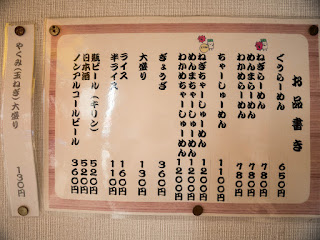 お品書き
ぐうらーめん 650
ねぎらーめん 780
めんまらーめん 780
わかめらーめん 780
ちゃーしゅーめん 1100
ねぎちゃーしゅーめん 1200
めんまちゃーしゅーめん 1200
わかめちゃーしゅーめん 1200
ぎょうざ 360
大盛り 130
ライス 160
半ライス 110
瓶ビール(キリン)
日本酒
ノンアルコールビール
やくみ(玉ねぎ)大盛り 130円